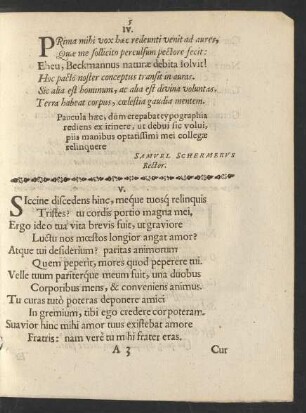 5
IV.
PRima mihi vox hæc redeunti venit ad aures,
Quæ me sollicito perculsum pectore fecit:
Eheu, Beckmannus naturæ debita solvit!
Huc pacto noster conceptus transit in auras.
Sic alia est hominum, ac alia est divina voluntas.
Terra habeat corpus, cœlestia gaudia mentem.
Paucula hæc, dùm crepabat typographia
rediens ex itinere, ut debui sic volui,
piis manibus optatissimi mei collegæ
relinquere
SAMUEL SCHERMERUS
Rector.
V.
SIccine discedens hinc, meque tuosq; relinquis
Tristes? tu cordis portio magna mei,
Ergo ideo tua vita brevis fuit, ut graviore
Luctu nos mœstos longior angat amor?
Atque tui desiderium? paritas animorum
Quem peperit, mores quod peperere tui.
Velle tuum pariterque meum fuit, una duobus
Corporibus mens, & conveniens animus.
Tu curas tutò poteras deponere amici
In gremium, tibi ego credere cor poteram.
Suavior hinc mihi amor tuus existebat amore
Fratris: nam verè tu mihi frater eras.
A 3 Cur